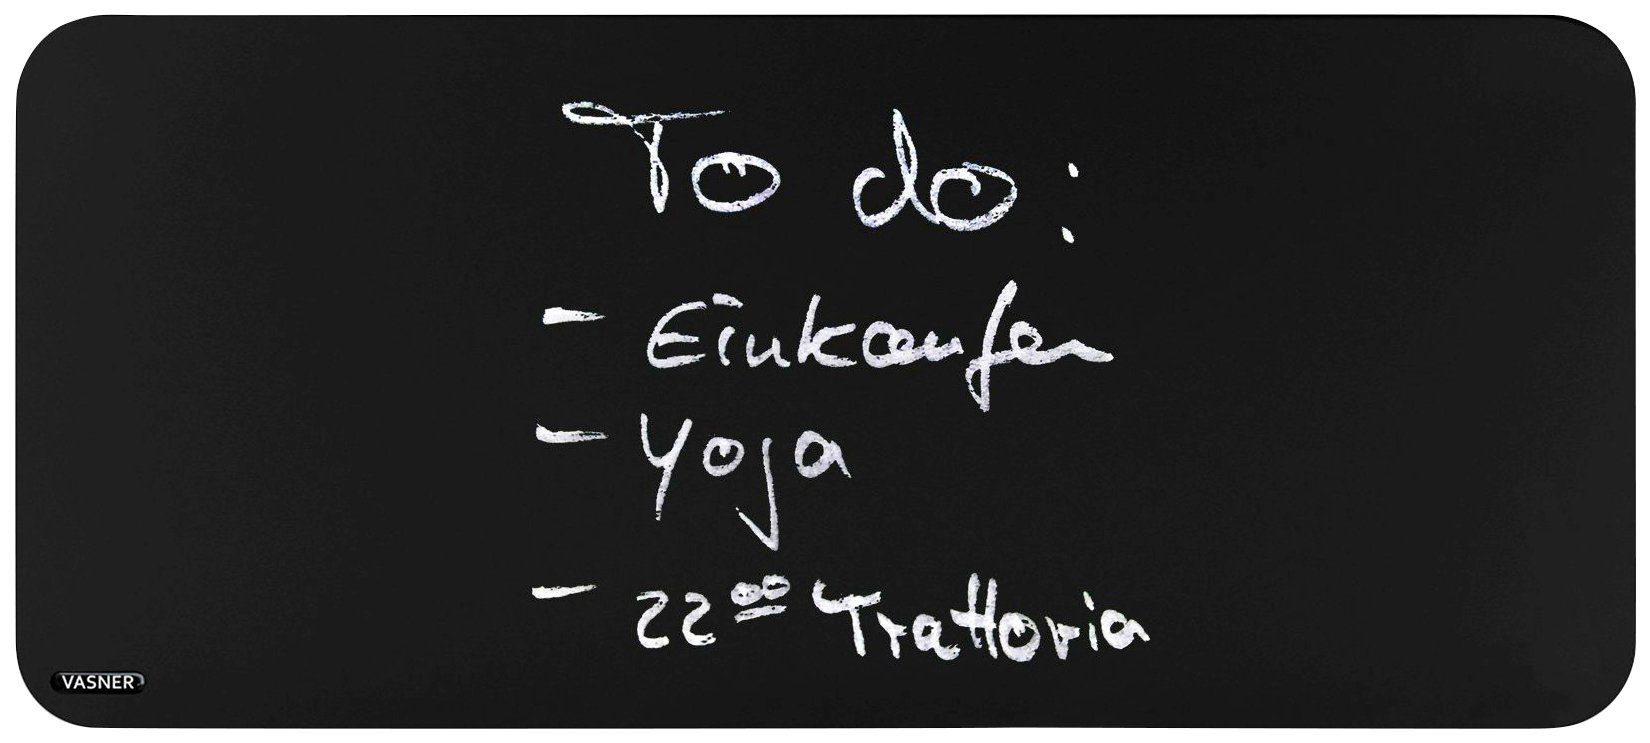 To do:
- Einkaufen
- Yoga
- 22⁰⁰ Trattoria
VASNER